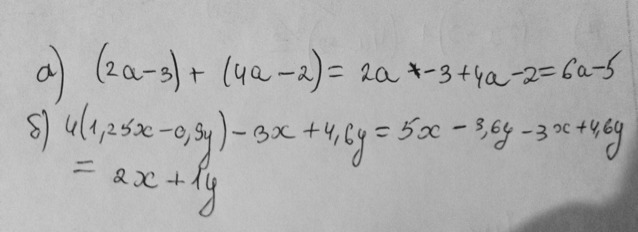 а) (2a-3)+(4a-2)=2a-3+4a-2=6a-5
б) 4(1,25x-0,9y)-3x+4,6y=5x-3,6y-3x+4,6y
= 2x+1y